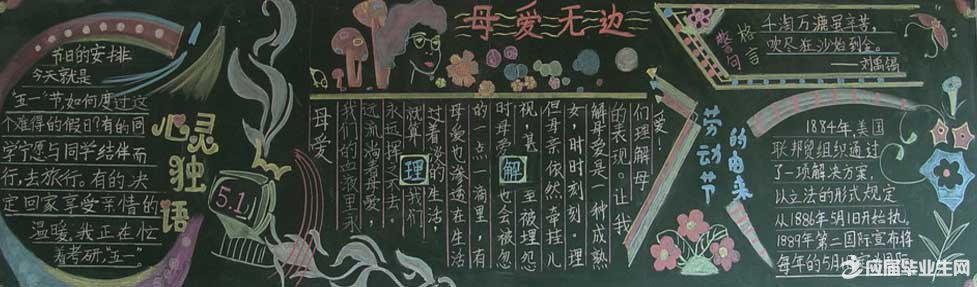 节日的安排
今天就是
"五一"节,如何度过这
个难得的假日?有的同
学宁愿与同学结伴而
行,去旅行。有的决
定回家享受亲情的
温暖,我正在忙
着考研,"五一"。
心灵独语
5.1
母爱无边
母爱
我们的血液里永
远流淌着母爱,
永远挥之不去。
就算我们
过着淡淡的生活,
母爱也渗透在生活
的一点一滴里,有
时母爱也会被忽
视,甚至被埋怨
但母亲依然牵挂儿
女,时时刻刻。理
解母爱是一种成熟
的表现。让我
们理解母
爱!
理解
警句格言
千淘万漉虽辛苦,
吹尽狂沙始到金。
——刘禹锡
劳动节的由来
1884年,美国
联邦贸组织通过
了一项解决方案,
以立法的形式规定
从1886年5月1日开始执。
1889年第二国际宣布将
每年的5月1
应届毕业生网